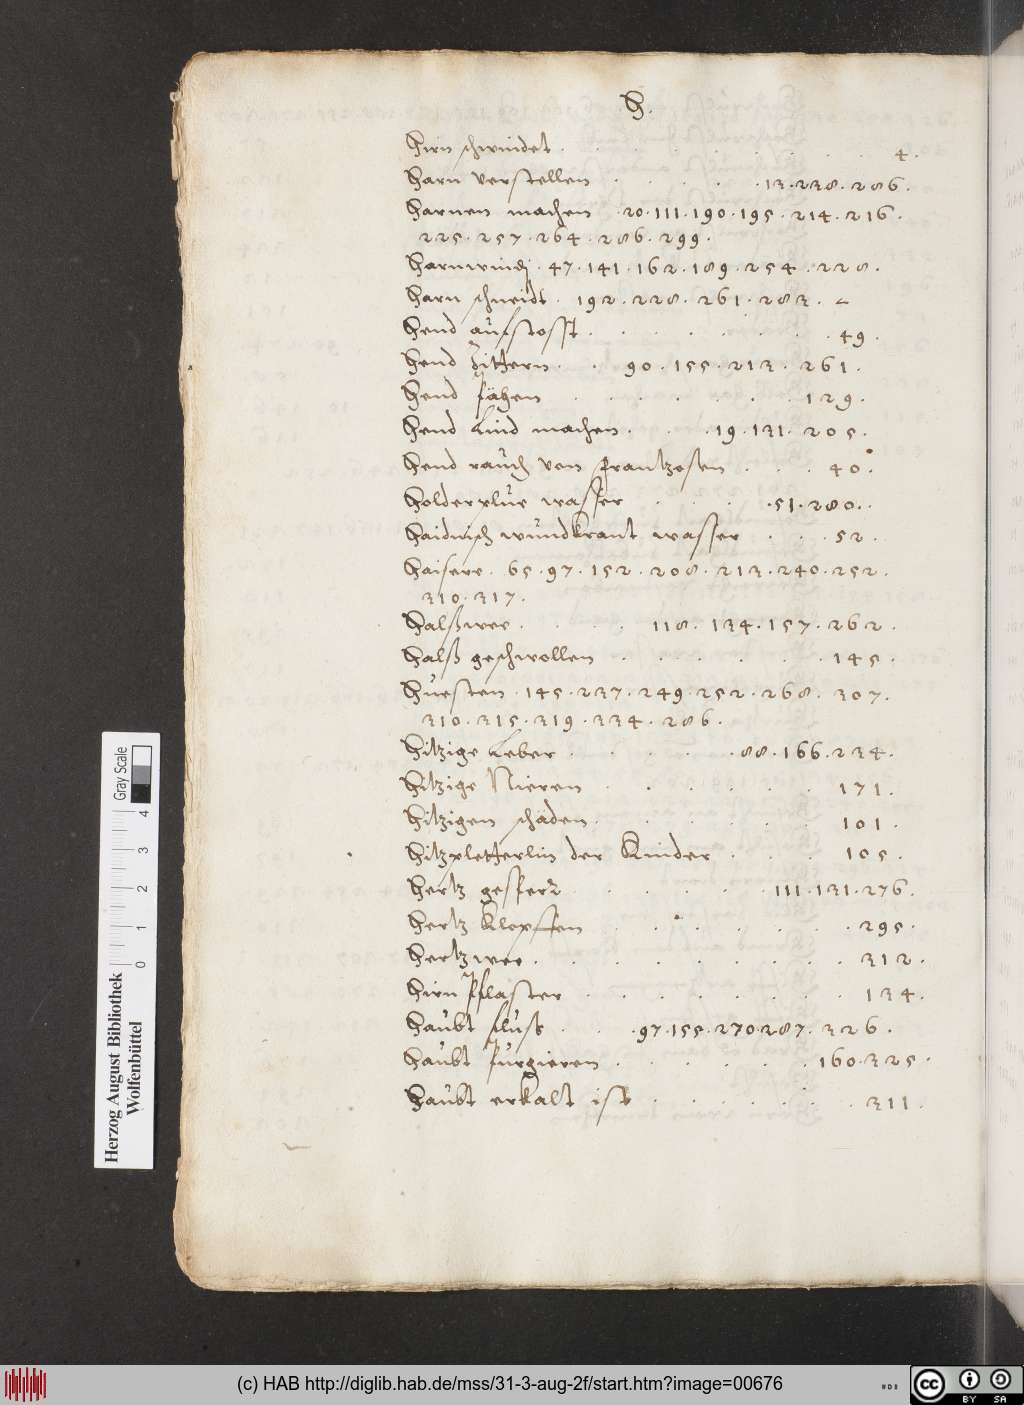 H.
Hirn schwindet . . . . . . . . 4.
Harn verstellen . . . . 13. 238. 286.
Harnen machen . 20. 111. 190. 195. 214. 216.
225. 257. 264. 286. 299.
Harnwindt . 47. 141. 162. 189. 254. 228.
Harn schneidt . 192. 228. 261. 283.
Hend aufstosst . . . . . . 49.
Hend Zittern . . 90. 155. 213. 261.
Hend . . . . . . 129.
Hend Lind machen . . . 19. 131. 205.
Hend rauch von frantzosen . . . 40.
Holderplüe wasser . . . . 51. 280.
Haidnisch wundkraut wasser . . . 52.
Haisere . 65. 97. 152. 208. 213. 240. 252.
310. 317.
Halßwee . . . . 118. 134. 157. 262.
Halß geschwollen . . . . . . 145.
Huesten . 145. 237. 249. 252. 268. 307.
310. 315. 319. 334. 286.
Hitzige Leber . . . . . 88. 166. 234.
Hitzige Nieren . . . . . . 171.
Hitzigen schäden . . . . . . 101.
Hitzpletterlin der Kinder . . . 105.
Hertz gesperr . . . . . . 111. 131. 276.
Hertz Klopffen . . . . . . . 295.
Hertzwee . . . . . . . . 312.
Hirn Pflaster . . . . . . . 134.
Haubt fluß . . . 97. 155. 270. 287. 326.
Haubt purgieren . . . . . 160. 325.
Haubt erkalt ist . . . . . . 311.
Herzog August Bibliothek
Wolfenbüttel
0 1 2 3 4
Gray Scale
(c) HAB http://diglib.hab.de/mss/31-3-aug-2f/start.htm?image=00676
HAB
cc BY SA